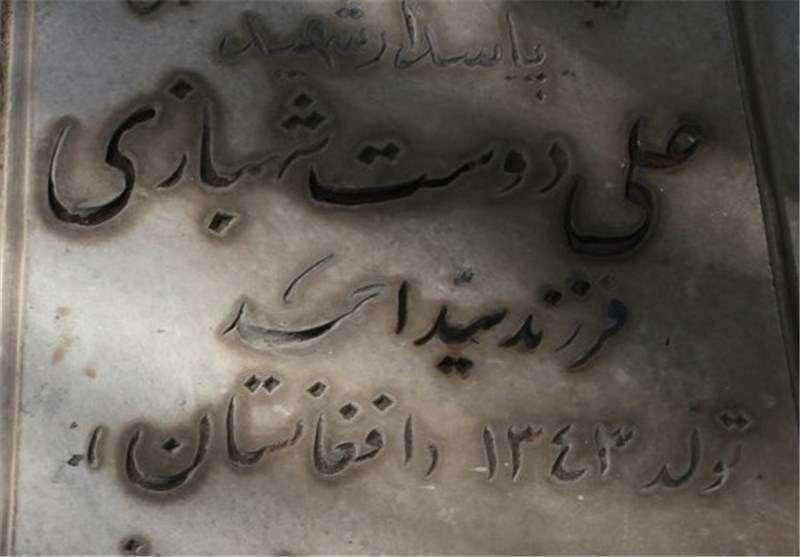 پاسدار شهید
علی دوست شهبازی
فرزند سید احمد
تولد ۱۳۴۳ (افغانستان)